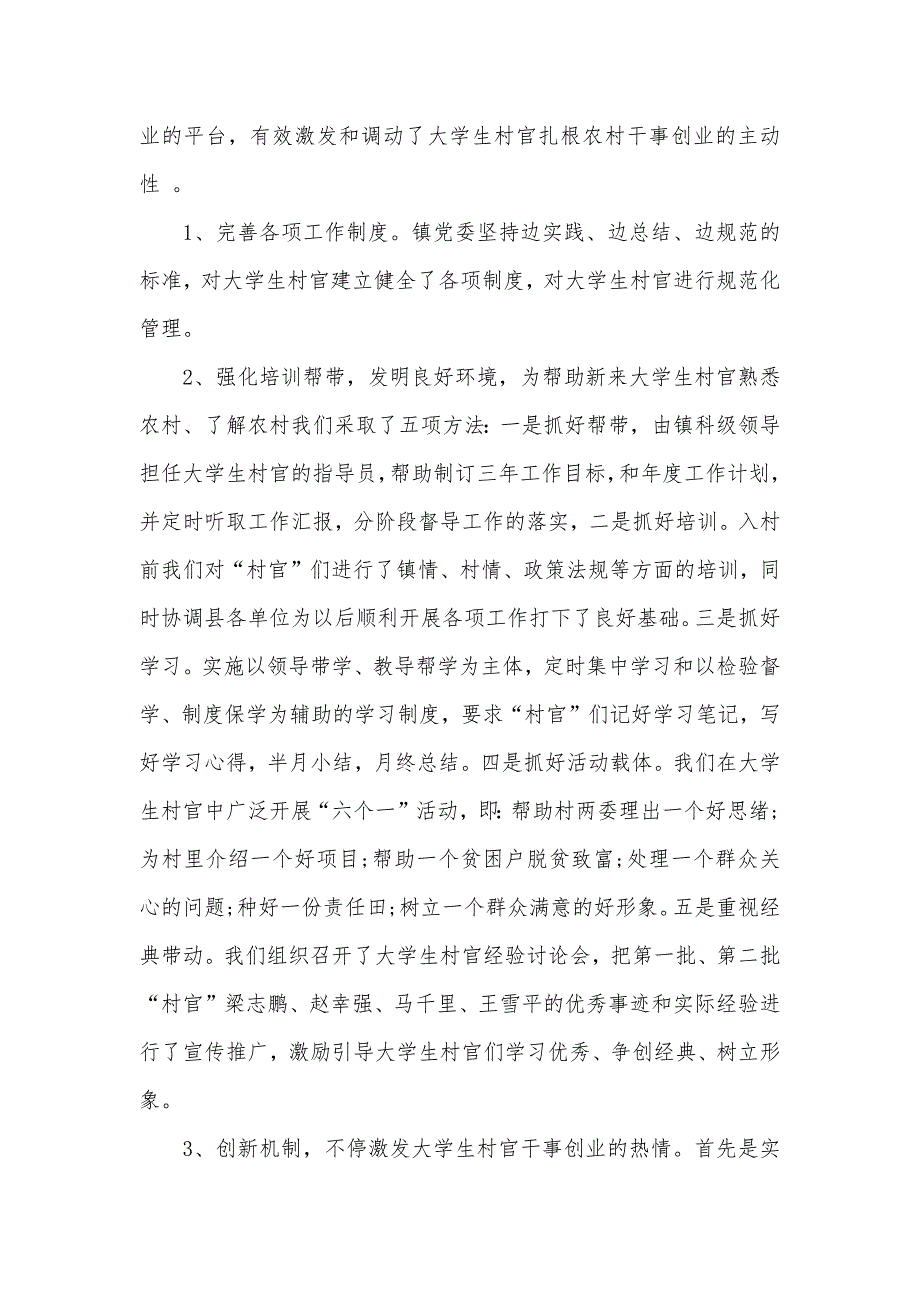 业的平台，有效激发和调动了大学生村官扎根农村干事创业的主动
性 。
1、完善各项工作制度。镇党委坚持边实践、边总结、边规范的
标准，对大学生村官建立健全了各项制度，对大学生村官进行规范化
管理。
2、强化培训帮带，发明良好环境，为帮助新来大学生村官熟悉
农村、了解农村我们采取了五项方法：一是抓好帮带，由镇科级领导
担任大学生村官的指导员，帮助制订三年工作目标，和年度工作计划，
并定时听取工作汇报，分阶段督导工作的落实，二是抓好培训。入村
前我们对“村官”们进行了镇情、村情、政策法规等方面的培训，同
时协调县各单位为以后顺利开展各项工作打下了良好基础。三是抓好
学习。实施以领导带学、教导帮学为主体，定时集中学习和以检验督
学、制度保学为辅助的学习制度，要求“村官”们记好学习笔记，写
好学习心得，半月小结，月终总结。四是抓好活动载体。我们在大学
生村官中广泛开展“六个一”活动，即：帮助村两委理出一个好思绪;
为村里介绍一个好项目;帮助一个贫困户脱贫致富;处理一个群众关
心的问题;种好一份责任田;树立一个群众满意的好形象。五是重视经
典带动。我们组织召开了大学生村官经验讨论会，把第一批、第二批
“村官”梁志鹏、赵幸强、马千里、王雪平的优秀事迹和实际经验进
行了宣传推广，激励引导大学生村官们学习优秀、争创经典、树立形
象。
3、创新机制，不停激发大学生村官干事创业的热情。首先是实